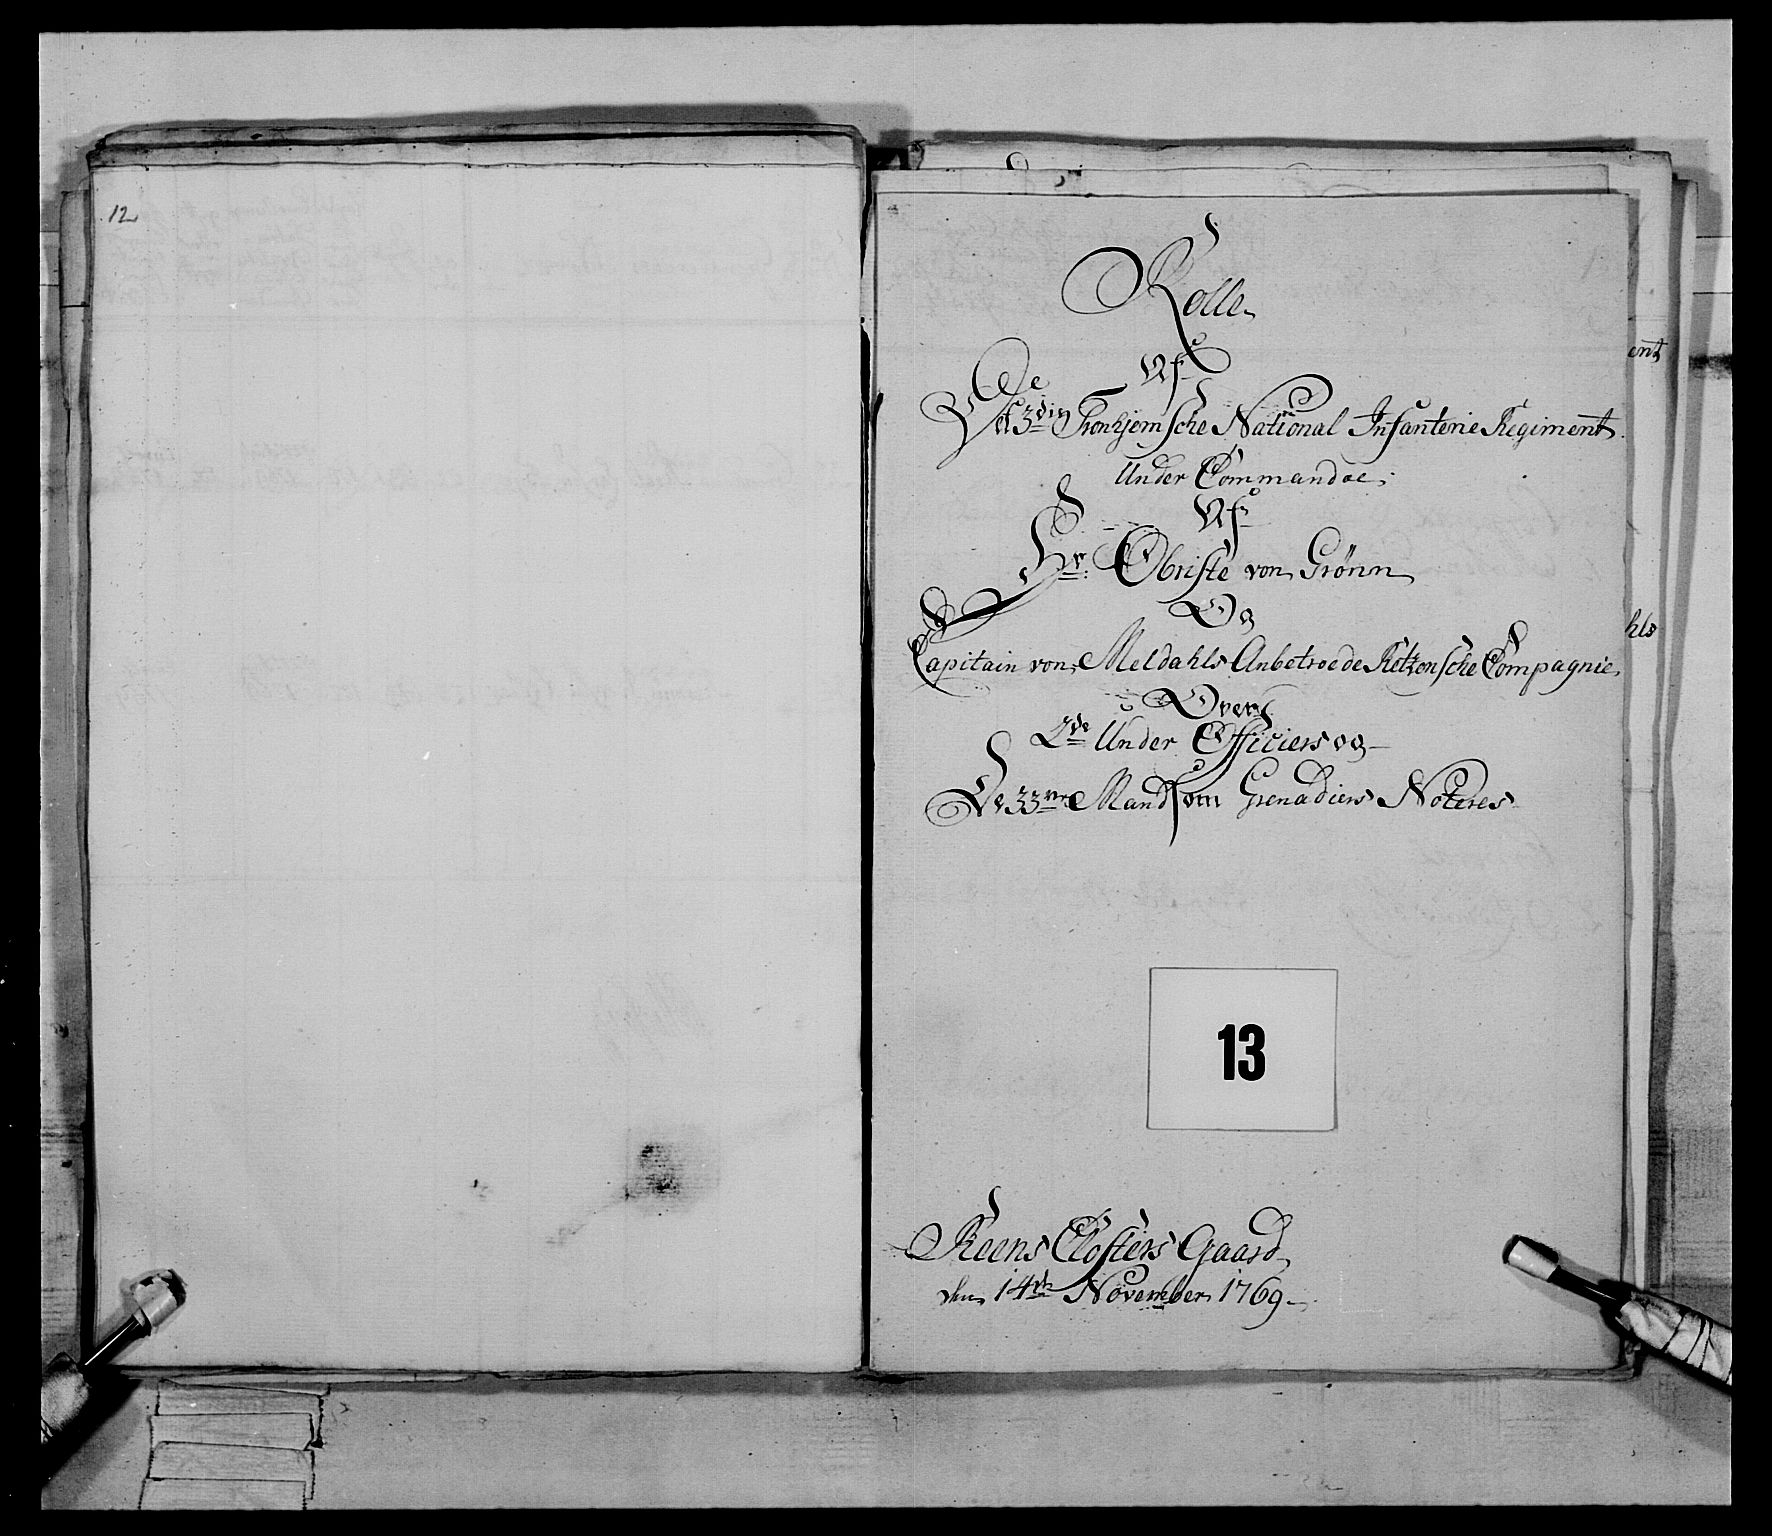 12
Rolle
Af
Det 3die Tronhjemsche National Infanterie Regiment
Under Commandoe
Af
Hr: Obriste von Grönn
Og
Capitain von Meldahls Anbetroede Retzensche Compagnie
Over
2de Under Officiers og
De 33ve Mand som Grenadiers Noteres
13
Reens Closters Gaard
den 14de November 1769
ent
hls